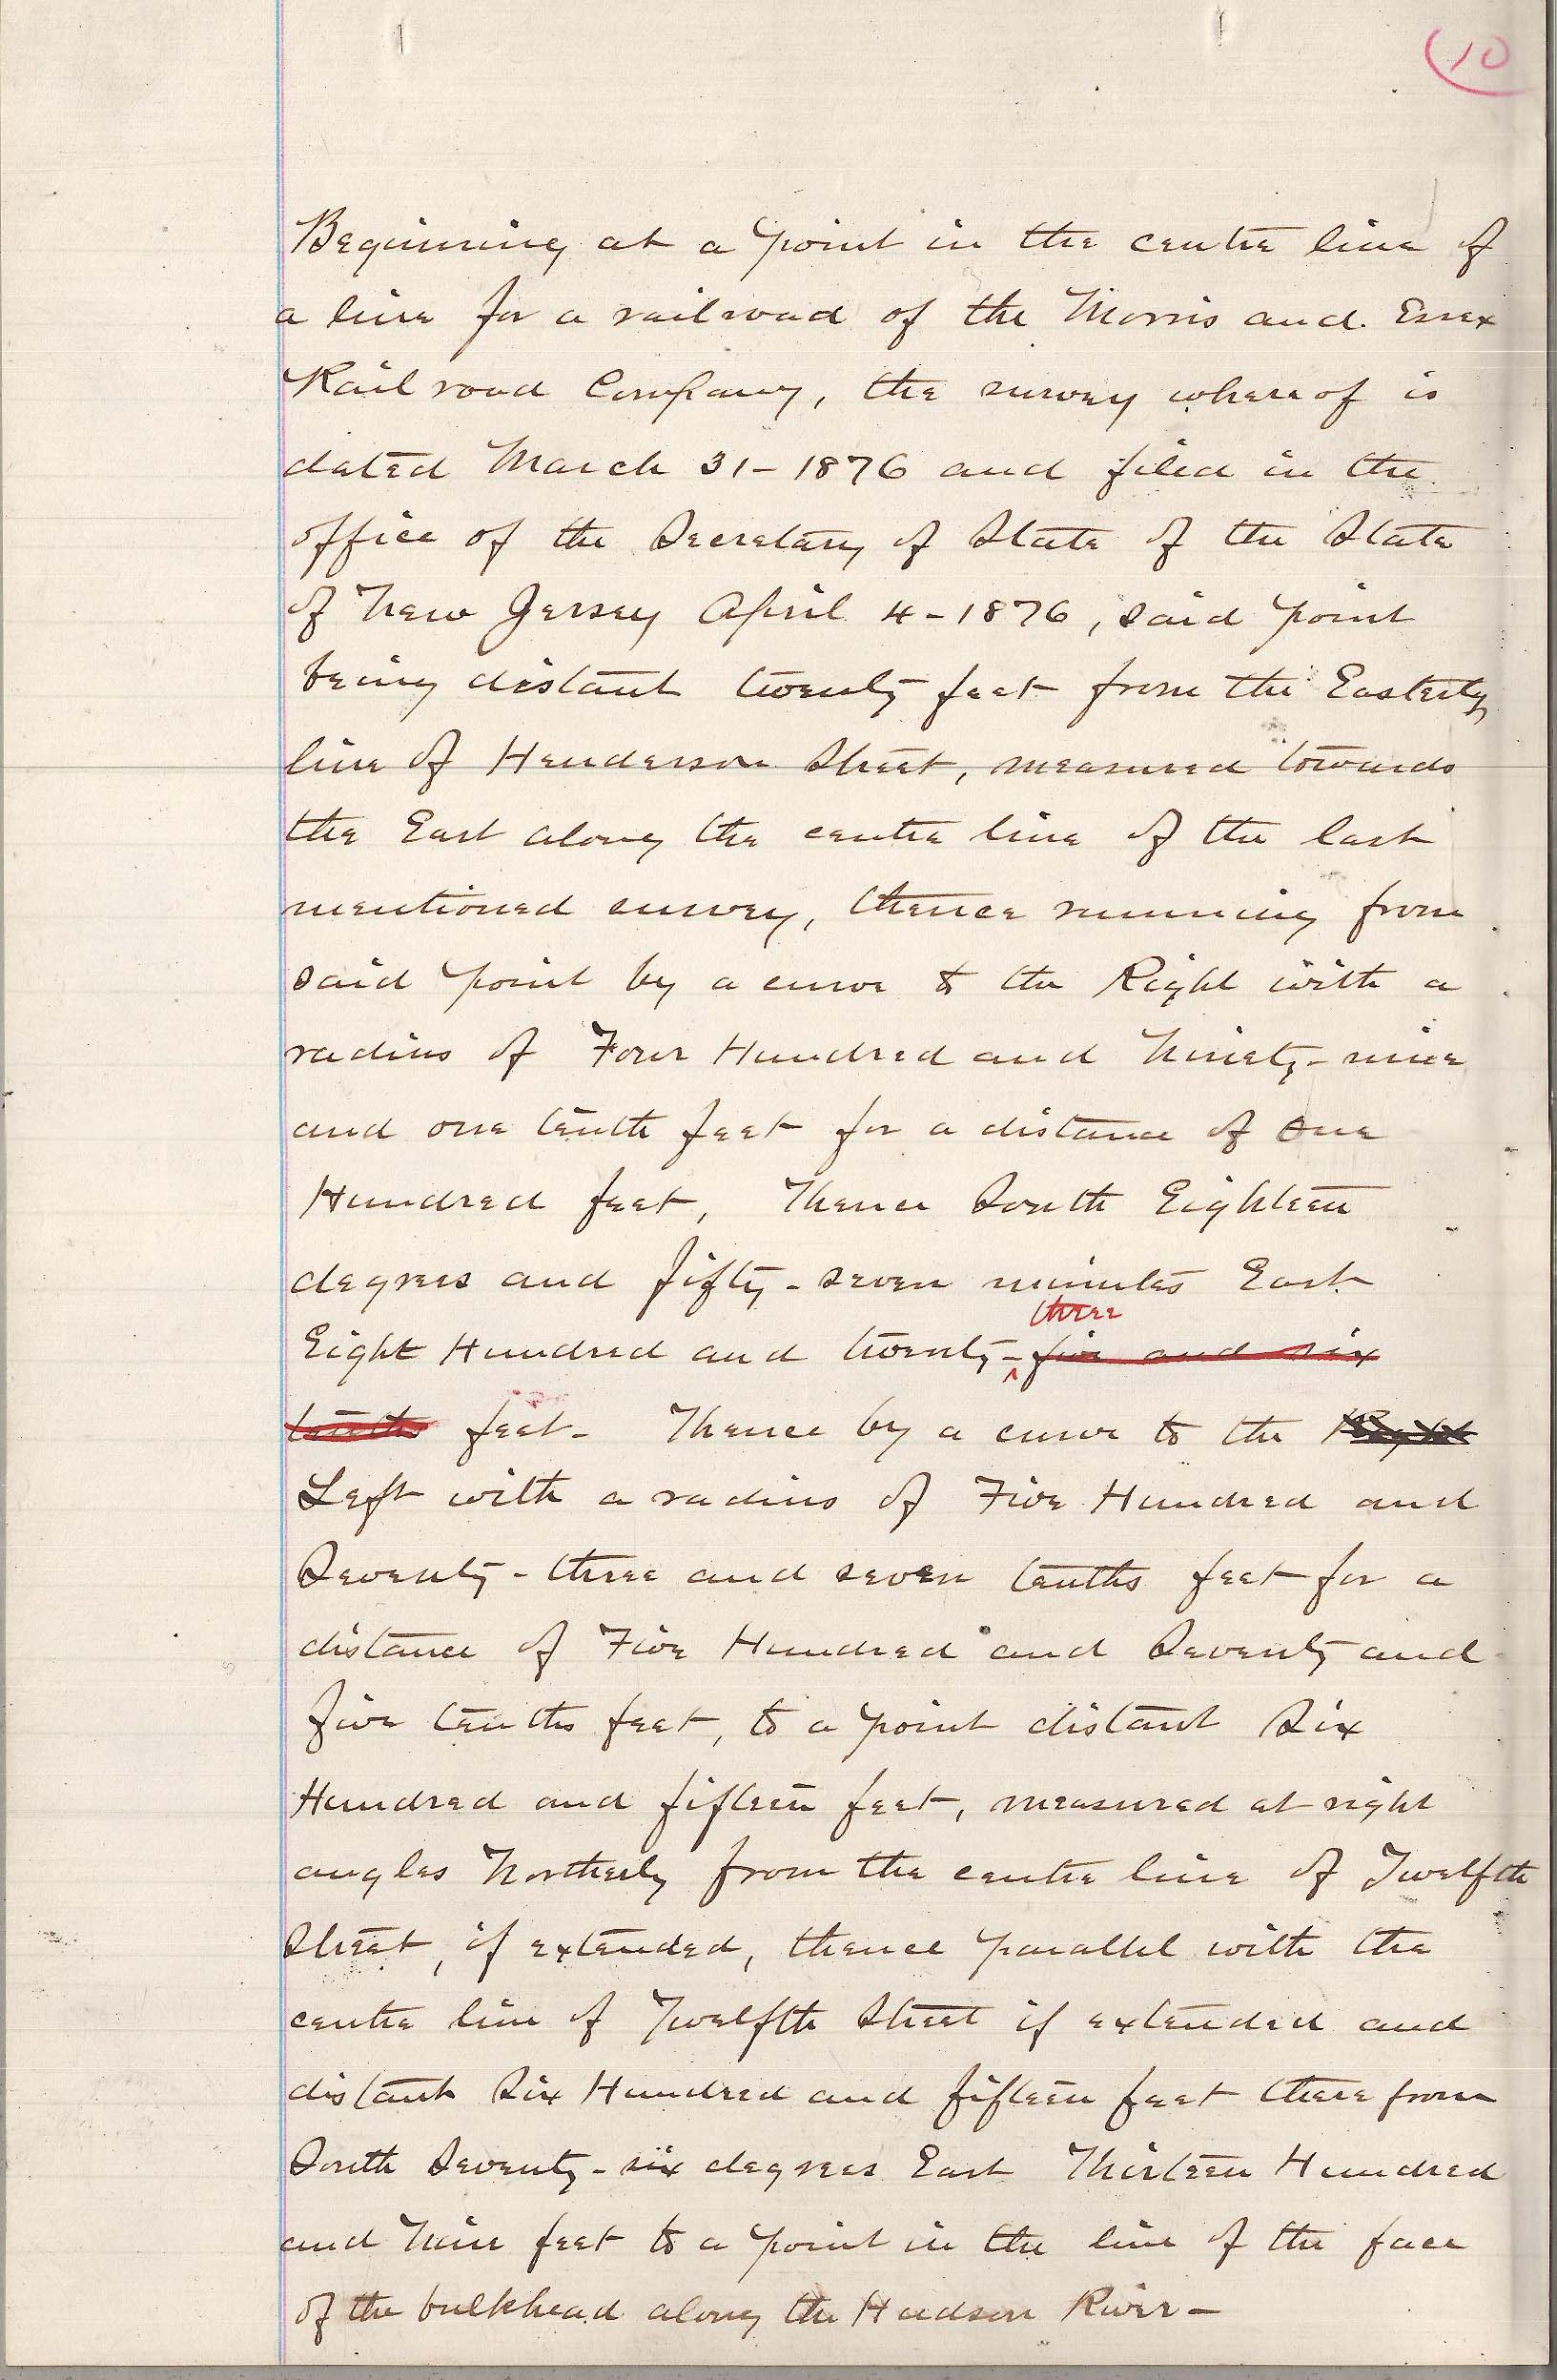 10
Beginning at a point in the centre line of
a line for a railroad of the Morris and Essex
Rail road Company, the survey whereof is
dated March 31 - 1876 and filed in the
office of the Secretary of State of the State
of New Jersey April 4 - 1876, said point
being distant twenty feet from the Easterly
line of Henderson Street, measured towards
the East along the centre line of the last
mentioned survey, thence running from
said point by a curve to the Right with a
radius of Four Hundred and Ninety-nine
and one tenth feet for a distance of One
Hundred feet, Thence South Eighteen
degrees and fifty-seven minutes East
three
Eight Hundred and twenty-five and six
tenths feet - Thence by a curve to the Right
Left with a radius of Five Hundred and
Seventy-three and seven tenths feet for a
distance of Five Hundred and Seventy and
five tenths feet, to a point distant Six
Hundred and fifteen feet, measured at right
angles Northerly from the centre line of Twelfth
Street, if extended, thence parallel with the
centre line of Twelfth Street if extended and
distant Six Hundred and fifteen feet there from
South Seventy-six degrees East Thirteen Hundred
and Nine feet to a point in the line of the face
of the bulkhead along the Hudson River -